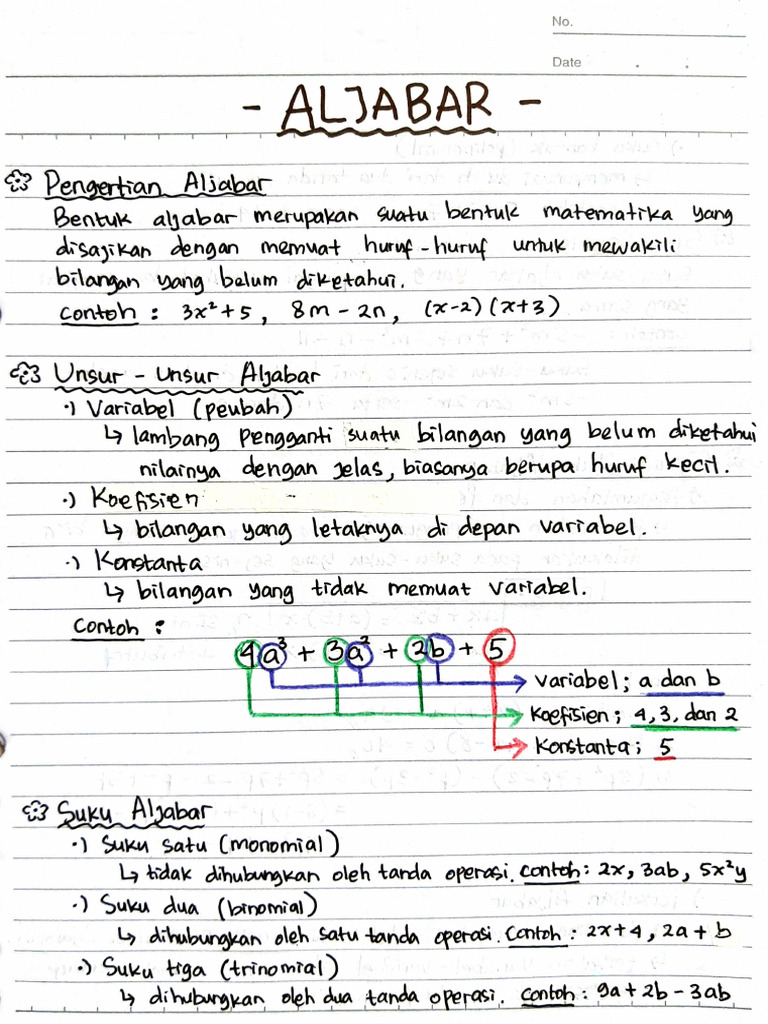 No.
Date . .
- ALJABAR -
Pengertian Aljabar
Bentuk aljabar merupakan suatu bentuk matematika yang
disajikan dengan memuat huruf-huruf untuk mewakili
bilangan yang belum diketahui.
Contoh : 3x² + 5, 8m - 2n, (x-2) (x+3)
Unsur - Unsur Aljabar
·) Variabel (peubah)
↳ lambang pengganti suatu bilangan yang belum diketahui
nilainya dengan jelas, biasanya berupa huruf kecil.
·) Koefisien
↳ bilangan yang letaknya di depan variabel.
·) Konstanta
↳ bilangan yang tidak memuat variabel.
Contoh :
4a³ + 3a² + 2b + 5
→ variabel ; a dan b
→ Koefisien ; 4, 3, dan 2
→ Konstanta ; 5
Suku Aljabar
·) Suku satu (monomial)
↳ tidak dihubungkan oleh tanda operasi. Contoh : 2x, 3ab, 5x²y
·) Suku dua (binomial)
↳ dihubungkan oleh satu tanda operasi. Contoh : 2x + 4, 2a + b
·) Suku tiga (trinomial)
↳ dihubungkan oleh dua tanda operasi. Contoh : 9a + 2b - 3ab